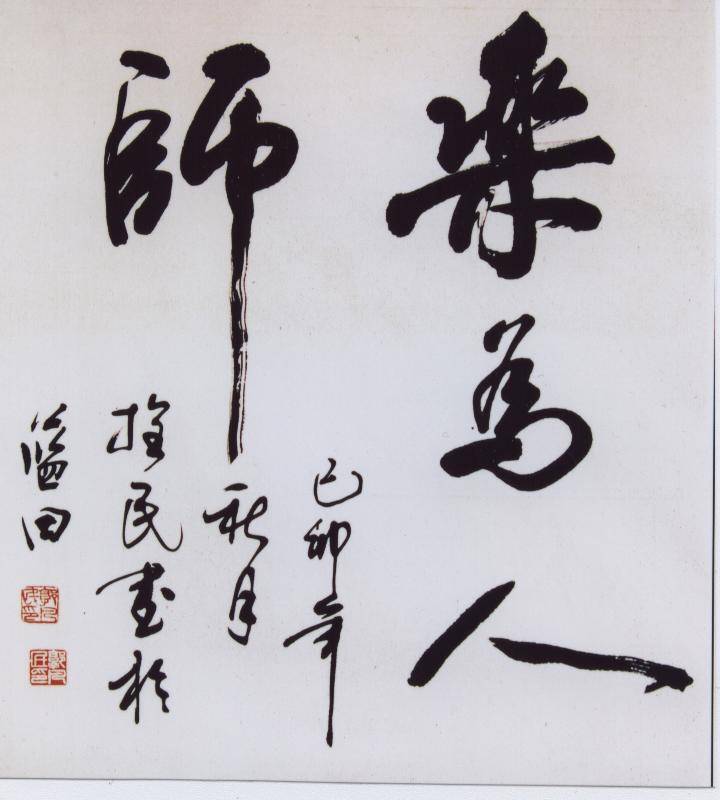 樂為人
師
己卯年
秋月
拴民書於
藍田